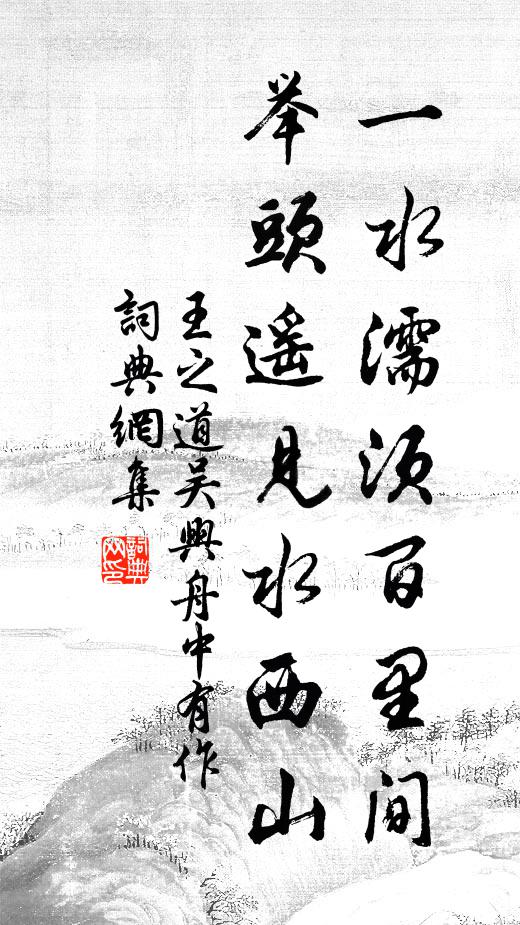 一水濡須百里間
举頭遥見水西山
王之道吴興舟中有作
詞典網集
詞典網印